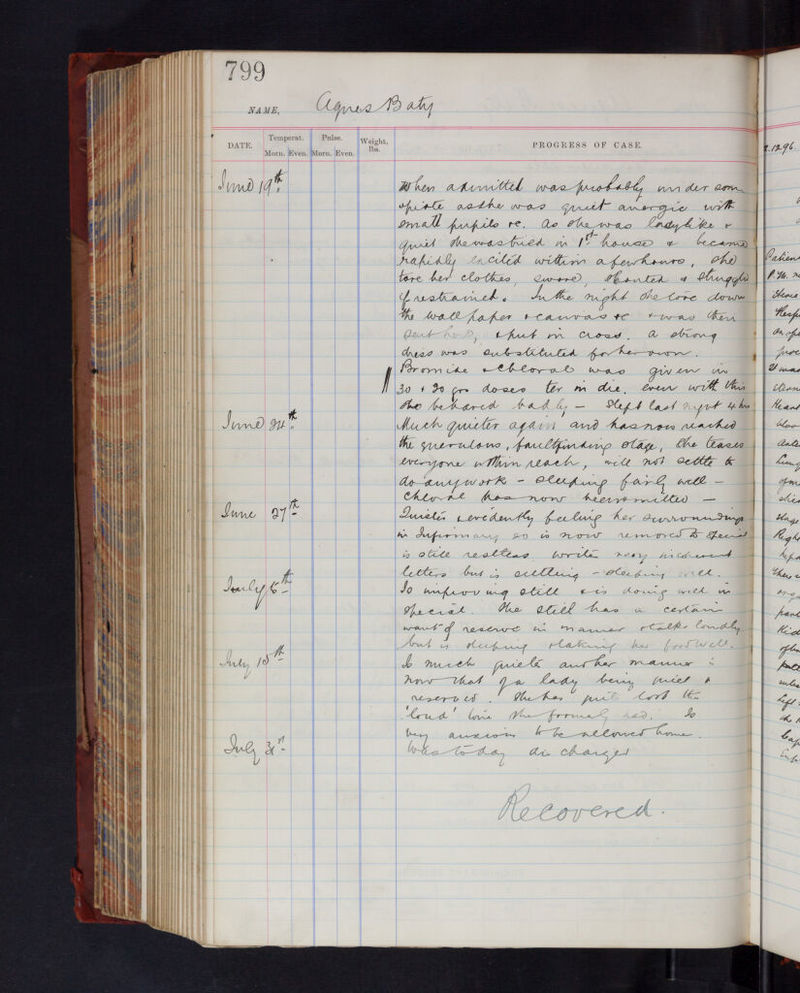 799
NAME, Agnes Baty
DATE. Temperat. Pulse. Weight, lbs. PROGRESS OF CASE.
Morn. Even. Morn. Even.
June 19th. When admitted was probably under some
opiate as she was quiet anergic with
small pupils &c. As she was ladylike &
quiet she was tried in 1st house & became
rapidly excited within a few hours, she
tore her clothes, swore, shouted & struggled
if restrained. In the night she tore down
the wall paper & canvas &c & was then
sent & put in cross. A strong
dress was substituted for her own.
Bromide & Chloral was given in
30 & 20 grs doses ter in die. Even with this
she behaved badly – Slept last night 4 hrs
June 24th. Much quieter again and has now reached
the querulous, faultfinding stage, she teases
everyone within reach, will not settle to
do any work – sleeping fairly well –
Chloral has now been omitted –
June 27th Quieter & evidently feeling her surroundings
in Infirmary so is now removed to Special
is still restless. writes very incoherent
letters but is settling – sleeping well.
July 6th Is improving still & is doing well in
special. She still has a certain
want of reserve in manner & talks loudly
but is sleeping & taking her food well.
July 15th Is much quieter and her manner is
now that of a lady being quiet &
reserved. She has quite lost the
'loud' tone she formerly had. Is
very anxious to be allowed home.
July 31st Was to day discharged
Recovered.